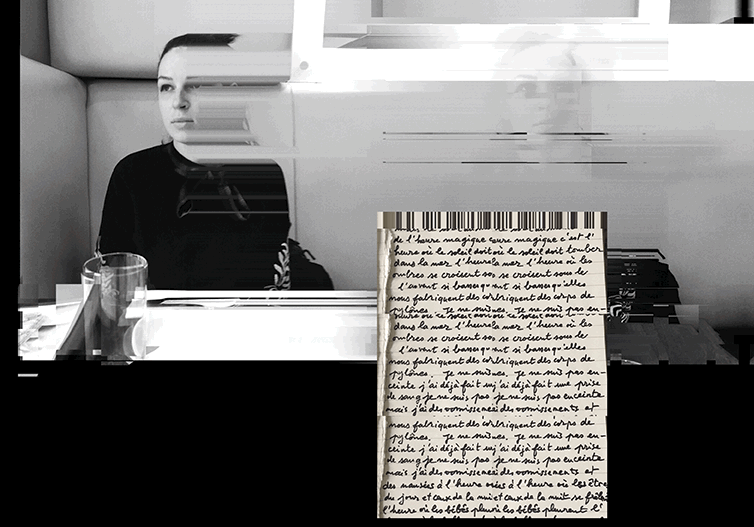 de l'heure magique eure magique c'est l'
heure où le soleil doit où le soleil doit tomber
dans la mer l'heure la mer l'heure où les
ombres se croisent sos se croisent sous le
l'auvent si basses qu'elles
nous fabriquent des corbriquent des corps de
pylônes. Je ne suis pas en-
dans la mer l'heure la mer l'heure où les
ombres se croisent sos se croisent sous le
l'auvent si basses qu'elles
nous fabriquent des corbriquent des corps de
pylônes. Je ne suis Je ne suis pas en-
ceinte j'ai déjà fait uj'ai déjà fait une prise
de sang je ne suis pas je ne suis pas enceinte
mais j'ai des vomissements et
nous fabriquent des corbriquent des corps de
pylônes. Je ne suis Je ne suis pas en-
ceinte j'ai déjà fait uj'ai déjà fait une prise
de sang je ne suis pas je ne suis pas enceinte
mais j'ai des vomissements et
des nausées à l'heure où les êtres
du jour et ceux de la nuit et ceux de la nuit se
l'heure où les bébés pleurent les bébés pleurent l'